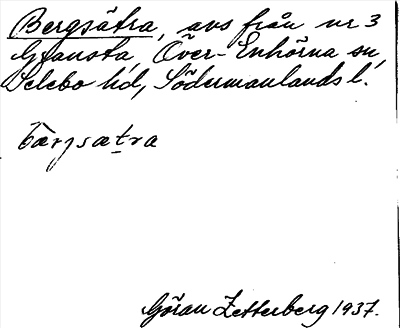 Bergsätra, avs från nr 3
Grausta, Över-Enhörna sn,
Selebo hd, Södermanlands l.
bærjsætra
Göran Zetterberg 1937.